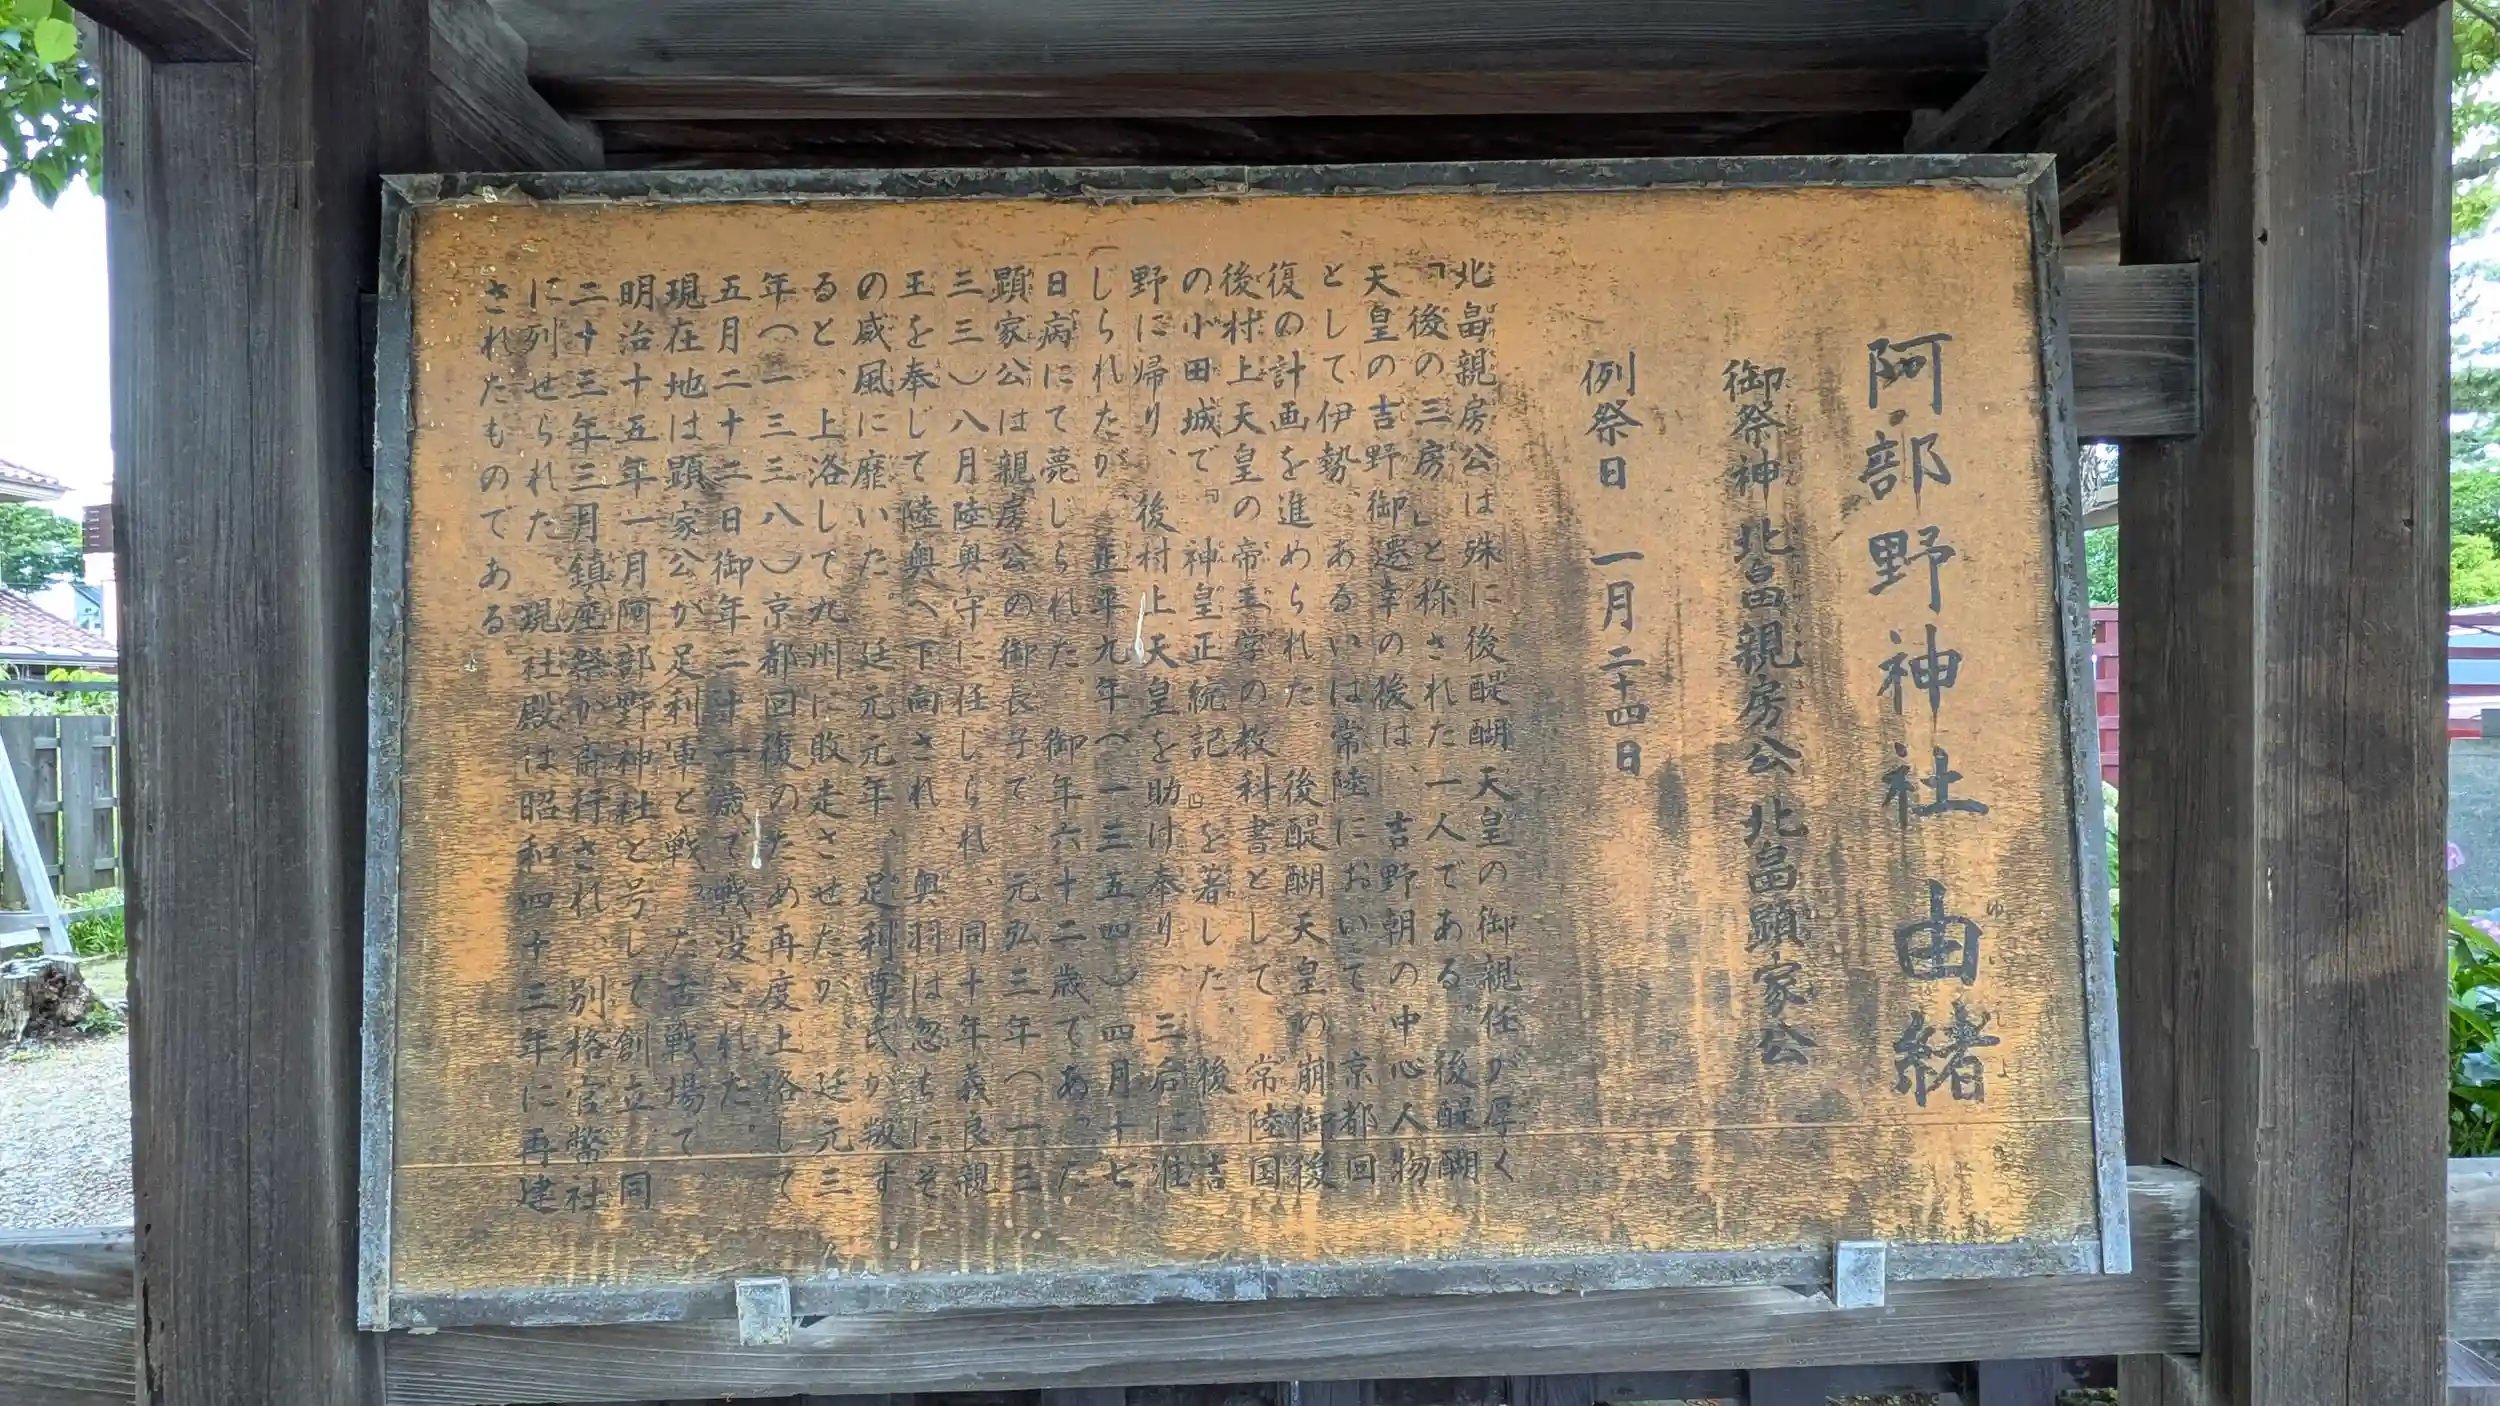 阿部野神社由緒
ゆいしょ
御祭神 北畠親房公 北畠顕家公
例祭日 一月二十四日
北畠親房公は殊に後醍醐天皇の御親任が厚く
「後の三房」と称された一人である。後醍醐
天皇の吉野御遷幸の後は、吉野朝の中心人物
として伊勢、あるいは常陸において、京都回
復の計画を進められた。後醍醐天皇の崩御後
後村上天皇の帝王学の教科書として、常陸国
の小田城で『神皇正統記』を著した。後、吉
野に帰り、後村上天皇を助け奉り、三后に准
じられたが、正平九年(一三五四)四月十七
日病にて薨じられた。御年六十二歳であった
顕家公は親房公の御長子で、元弘三年(一三
三三)八月陸奥守に任じられ、同十年義良親
王を奉じて陸奥へ下向され、奥羽は忽ちにそ
の威風に靡いた。廷元元年、足利尊氏が叛す
ると、上洛して九州に敗走させたが、廷元三
年(一三三八)京都回復のため再度上洛して
五月二十二日御年二十一歳で戦没された。
現在地は顕家公が足利軍と戦った古戦場で
明治十五年一月阿部野神社と号して創立、同
二十三年三月鎮座祭が斎行され、別格官幣社
に列せられた。現社殿は昭和四十三年に再建
されたものである。